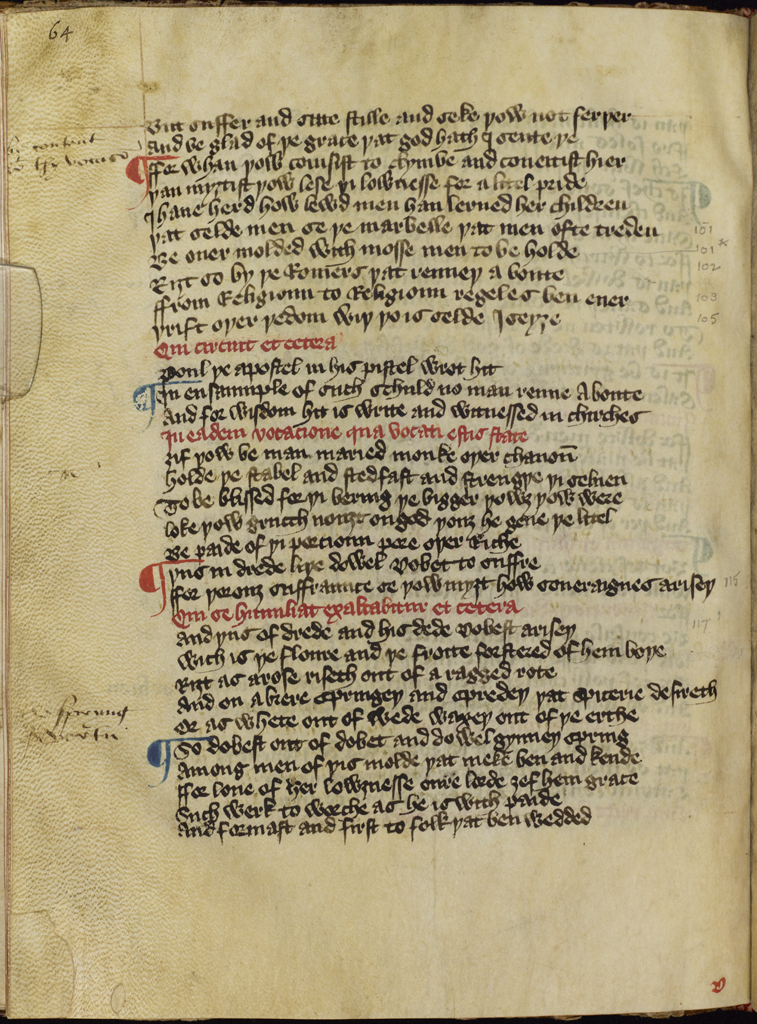 64
But suffer and sitte stille and seke yow not ferþer
And be glad of þe grace þat god hath I sente þe
be content
For whan þow comsist to clymbe and coueitist hier
þan myȝtist þow lese þi lownesse for a litel pride
I haue herd how lewd men han lerned her children
þat selde men se þe marbelle þat men ofte treden 101
Be ouer molded with mosse men to be holde 101*
Riȝt so by þe Romers þat renneþ a boute 102
From Religioun to Religioun regeles ben euer 103
þrift oyer yedom wiþ yo is selde I seyȝe 105
Qui circuit et cetera
Poul þe apostel in his pistel wrot hit
In ensaumple of such schuld no man renne A boute
And for wisdom hit is write and witnessed in chirches
In eadem vocacione qua vocati estis state
Ȝif þow be man maried monke oþer chanoun
Holde þe stabel and stedfast and strengþe þi seluen
To be blissed for þi bering þe bigger þowȝ þow were
loke þow grucch nouȝt on god þouȝ he gene þe litel
Be paide of þi porcioun pore oþer Riche
þus in drede liþe dowel Dobet to suffre
For þorouȝ suffraunce se þow myȝt how soueraignes ariseþ 115
Qui se humiliat exaltabitur et cetera
And þus of drede and his dede Dobest ariseþ 117
Wich is þe floure and þe froite forstered of hem boþe
Riȝt as a rose riseth out of a ragged rote
And on a brere springeþ and spredeþ þat spicerie desireth
Or as whete out of wede waxeþ out of þe erthe
So dobest out of dobet and dowel gynneþ spring
Among men of þis molde þat meke ben and kende
For loue of her lowȝnesse oure lorde ȝef hem grace
Such werk to worche as he is with paide
And formast and first to folk þat ben wedded